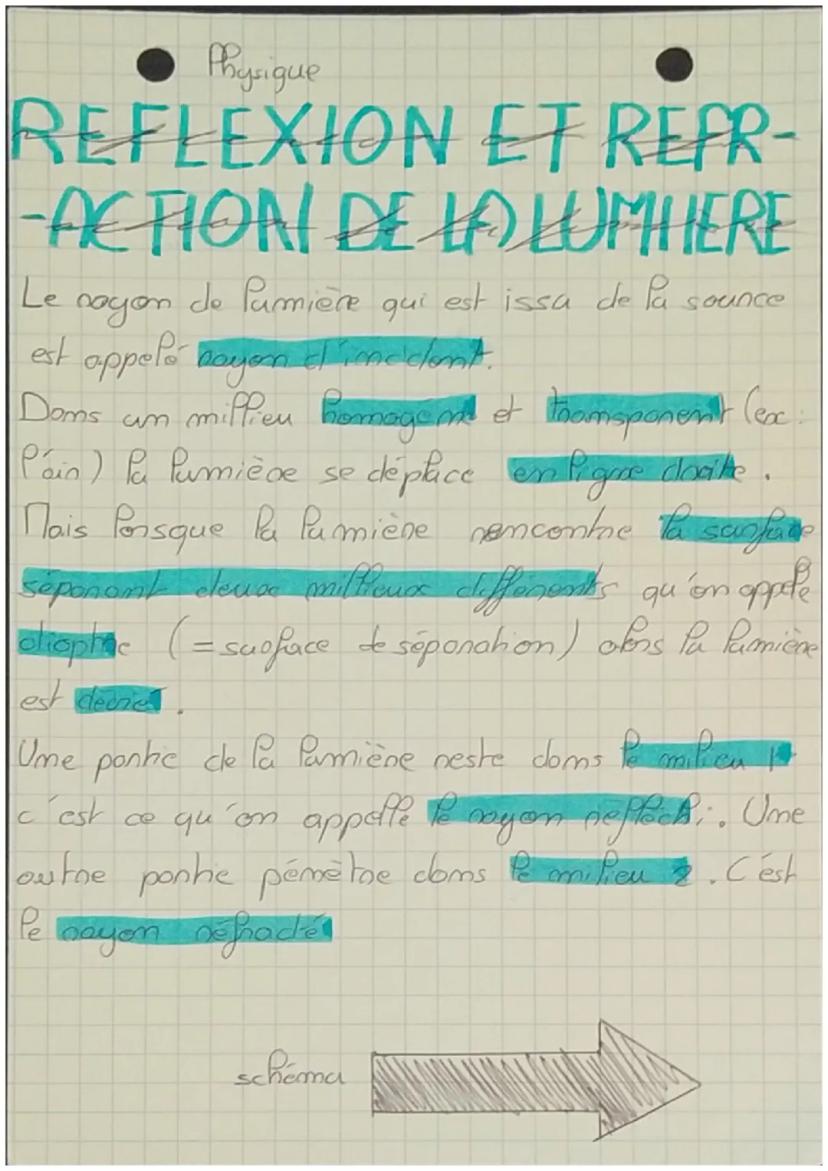 Physique
REFLEXION ET REFR-
-ACTION DE LA LUMIIERE
Le rayon de lumière qui est issu de la source
est appelé rayon d'incident.
Dans un milieu homogène et transparent (ex :
l'air) la lumière se déplace en ligne droite.
Mais lorsque la lumière rencontre la surface
séparant deux milieux différents qu'on appelle
dioptre (= surface de séparation) alors la lumière
est déviée.
Une partie de la lumière reste dans le milieu 1
c'est ce qu'on appelle le rayon réfléchi. Une
autre partie pénètre dans le milieu 2. C'est
le rayon réfracté
schéma